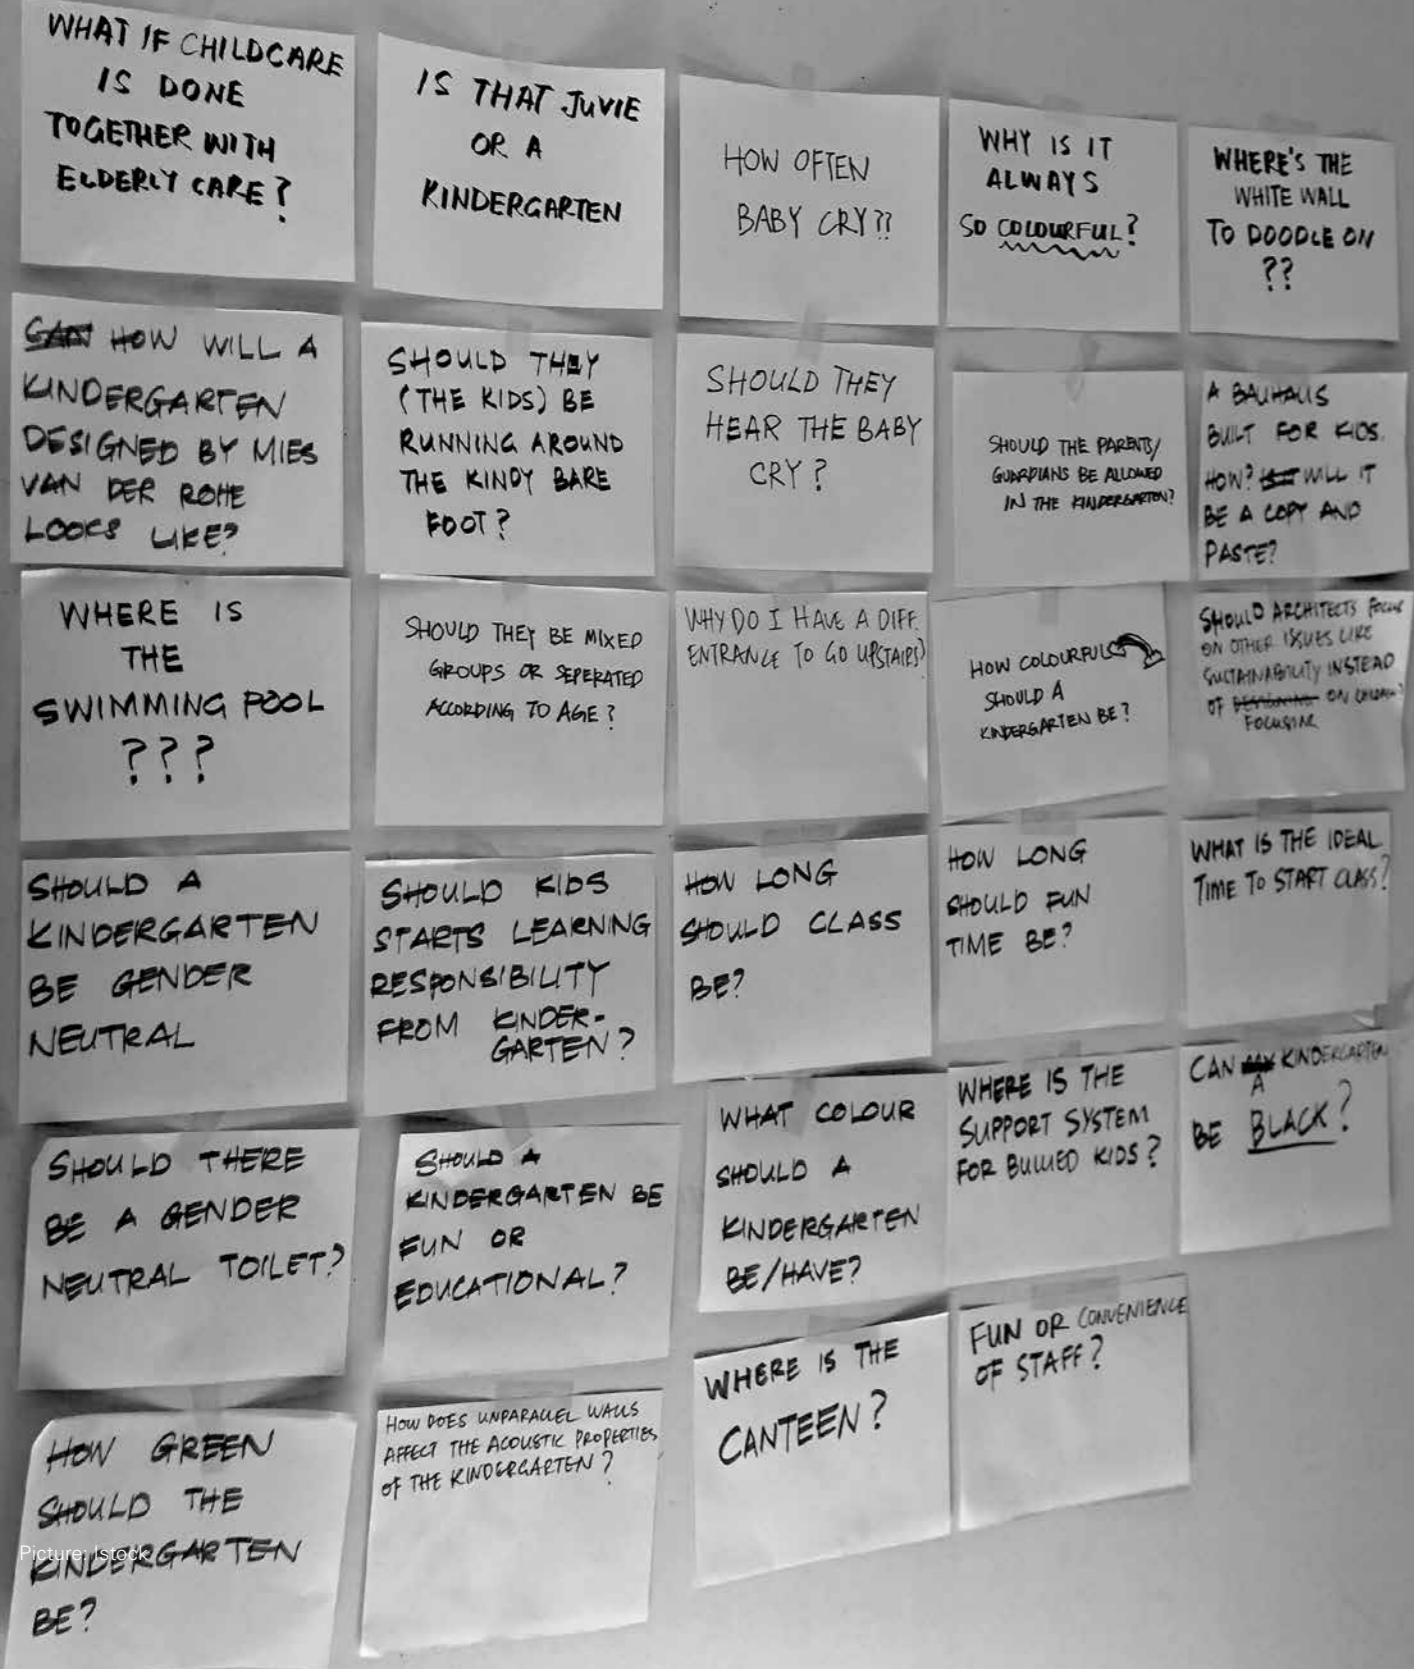 WHAT IF CHILDCARE
IS DONE
TOGETHER WITH
ELDERLY CARE?
IS THAT JUVIE
OR A
KINDERGARTEN
HOW OFTEN
BABY CRY??
WHY IS IT
ALWAYS
SO COLOURFUL?
WHERE'S THE
WHITE WALL
TO DOODLE ON
??
CAN HOW WILL A
KINDERGARTEN
DESIGNED BY MIES
VAN DER ROHE
LOOKS LIKE?
SHOULD THEY
(THE KIDS) BE
RUNNING AROUND
THE KINDY BARE
FOOT?
SHOULD THEY
HEAR THE BABY
CRY?
SHOULD THE PARENTS/
GUARDIANS BE ALLOWED
IN THE KINDERGARTEN?
A BAUHAUS
BUILT FOR KIDS.
HOW? WILL IT
BE A COPY AND
PASTE?
WHERE IS
THE
SWIMMING POOL
???
SHOULD THEY BE MIXED
GROUPS OR SEPERATED
ACCORDING TO AGE?
WHY DO I HAVE A DIFF.
ENTRANCE TO GO UPSTAIRS?
HOW COLOURFUL
SHOULD A
KINDERGARTEN BE?
SHOULD ARCHITECTS FOCUS
ON OTHER ISSUES LIKE
SUSTAINABILITY INSTEAD
OF DESIGNING ON
FOCUSING
SHOULD A
KINDERGARTEN
BE GENDER
NEUTRAL
SHOULD KIDS
STARTS LEARNING
RESPONSIBILITY
FROM KINDER-
GARTEN?
HOW LONG
SHOULD CLASS
BE?
HOW LONG
SHOULD FUN
TIME BE?
WHAT IS THE IDEAL
TIME TO START CLASS?
SHOULD THERE
BE A GENDER
NEUTRAL TOILET?
SHOULD A
KINDERGARTEN BE
FUN OR
EDUCATIONAL?
WHAT COLOUR
SHOULD A
KINDERGARTEN
BE/HAVE?
WHERE IS THE
SUPPORT SYSTEM
FOR BULLIED KIDS?
CAN KINDERGARTEN
A
BE BLACK?
HOW GREEN
SHOULD THE
KINDERGARTEN
BE?
Picture: Istock
HOW DOES UNPARALLEL WALLS
AFFECT THE ACOUSTIC PROPERTIES
OF THE KINDERGARTEN?
WHERE IS THE
CANTEEN?
FUN OR CONVENIENCE
OF STAFF?